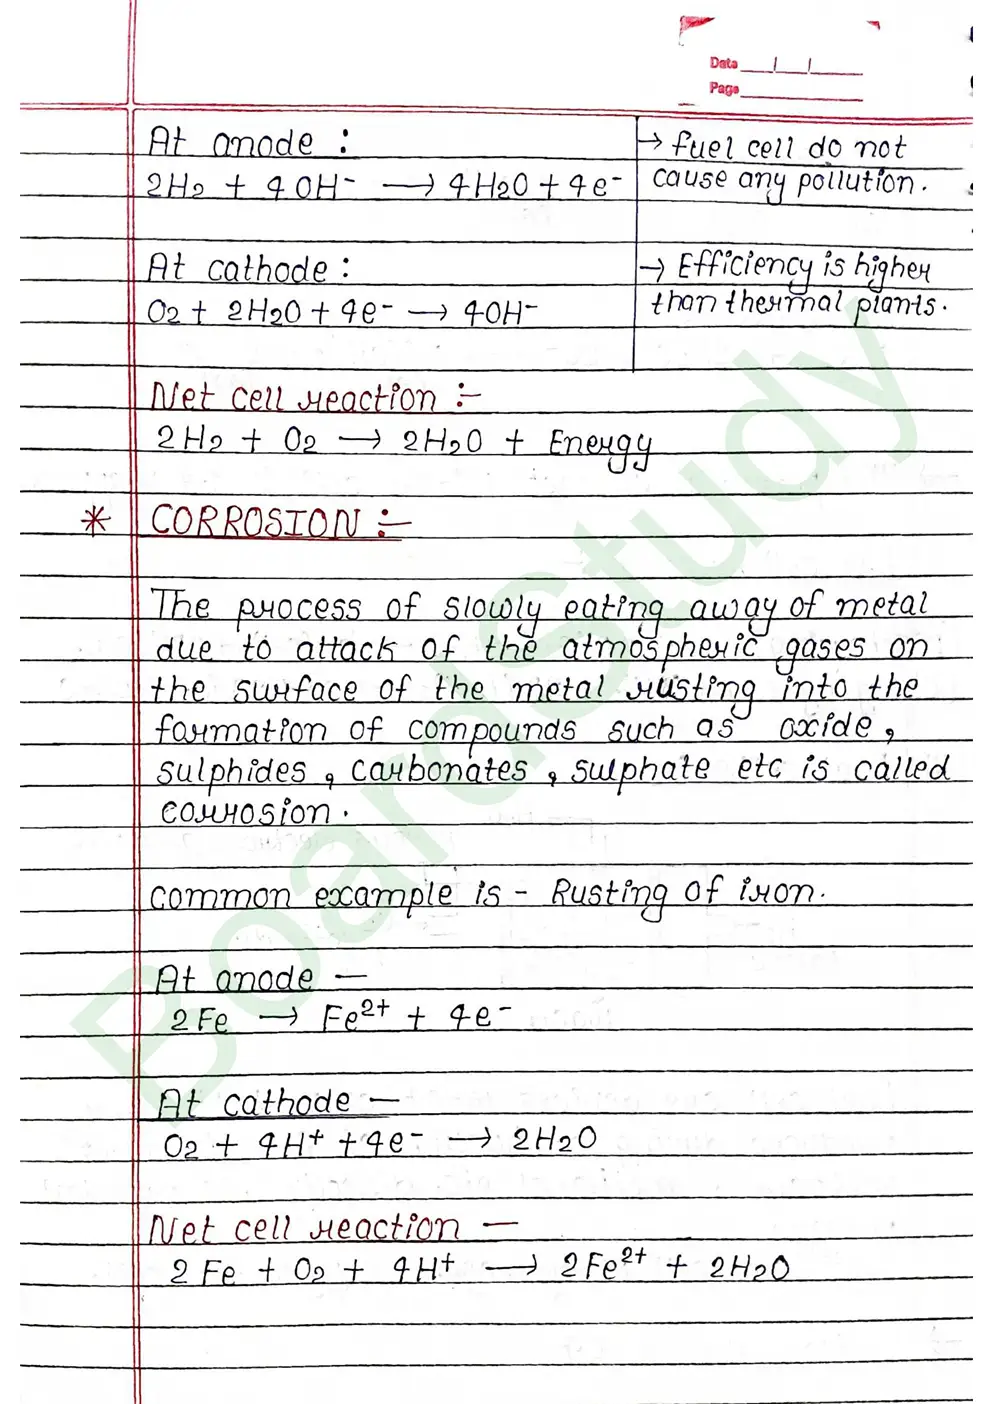 Date __/__/__
Page
At anode :
2H2 + 4OH- → 4H2O + 4e-
→ fuel cell do not
cause any pollution.
At cathode :
O2 + 2H2O + 4e- → 4OH-
→ Efficiency is higher
than thermal plants.
Net cell reaction :-
2H2 + O2 → 2H2O + Energy
* CORROSION :-
The process of slowly eating away of metal
due to attack of the atmospheric gases on
the surface of the metal rusting into the
formation of compounds such as oxide,
sulphides, carbonates, sulphate etc is called
corrosion.
common example is - Rusting of iron.
At anode —
2Fe → Fe2+ + 4e-
At cathode —
O2 + 4H+ + 4e- → 2H2O
Net cell reaction —
2Fe + O2 + 4H+ → 2Fe2+ + 2H2O
BoardStudy